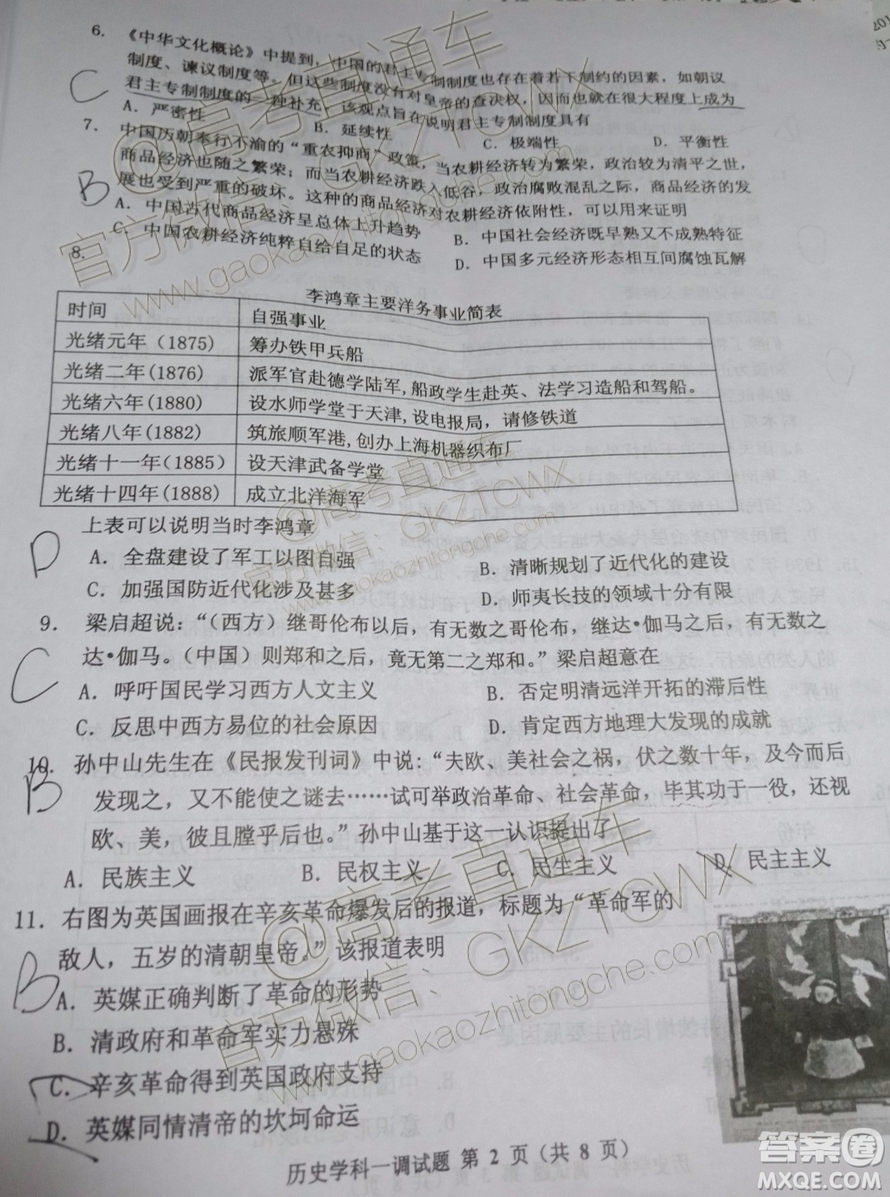 6. 《中华文化概论》中提到，中国的君主专制制度也存在着若干制约的因素，如朝议
制度、谏议制度等。但这些制度没有对皇帝的查决权，因而也就在很大程度上成为
君主专制制度的一种补充，该观点旨在说明君主专制制度具有
C
A．严密性 B．延续性 C．极端性 D．平衡性
7. 中国历朝奉行不渝的“重农抑商”政策，当农耕经济转为繁荣，政治较为清平之世，
商品经济也随之繁荣；而当农耕经济跌入低谷，政治腐败混乱之际，商品经济的发
展也受到严重的破坏。这种的商品经济对农耕经济依附性，可以用来证明
B
A．中国古代商品经济呈总体上升趋势 B．中国社会经济既早熟又不成熟特征
C．中国农耕经济纯粹自给自足的状态 D．中国多元经济形态相互间腐蚀瓦解
8.
李鸿章主要洋务事业简表
时间 自强事业
光绪元年（1875） 筹办铁甲兵船
光绪二年（1876） 派军官赴德学陆军，船政学生赴英、法学习造船和驾船。
光绪六年（1880） 设水师学堂于天津，设电报局，请修铁道
光绪八年（1882） 筑旅顺军港，创办上海机器织布厂
光绪十一年（1885） 设天津武备学堂
光绪十四年（1888） 成立北洋海军
上表可以说明当时李鸿章
D
A．全盘建设了军工以图自强 B．清晰规划了近代化的建设
C．加强国防近代化涉及甚多 D．师夷长技的领域十分有限
9．梁启超说：“（西方）继哥伦布以后，有无数之哥伦布，继达•伽马之后，有无数之
达•伽马。（中国）则郑和之后，竟无第二之郑和。”梁启超意在
C
A．呼吁国民学习西方人文主义 B．否定明清远洋开拓的滞后性
C．反思中西方易位的社会原因 D．肯定西方地理大发现的成就
10．孙中山先生在《民报发刊词》中说：“夫欧、美社会之祸，伏之数十年，及今而后
B
发现之，又不能使之谜去……试可举政治革命、社会革命，毕其功于一役，还视
欧、美，彼且瞠乎后也。”孙中山基于这一认识提出了
A．民族主义 B．民权主义 C．民生主义 D．民主主义
11．右图为英国画报在辛亥革命爆发后的报道，标题为“革命军的
敌人，五岁的清朝皇帝。”该报道表明
B
A．英媒正确判断了革命的形势
B．清政府和革命军实力悬殊
C．辛亥革命得到英国政府支持
D．英媒同情清帝的坎坷命运
历史学科一调试题 第 2 页（共 8 页）
@高考直通车
官方微信：GKZTCWX
www.gaokaozhitongche.com
答案圈
MXQE.COM